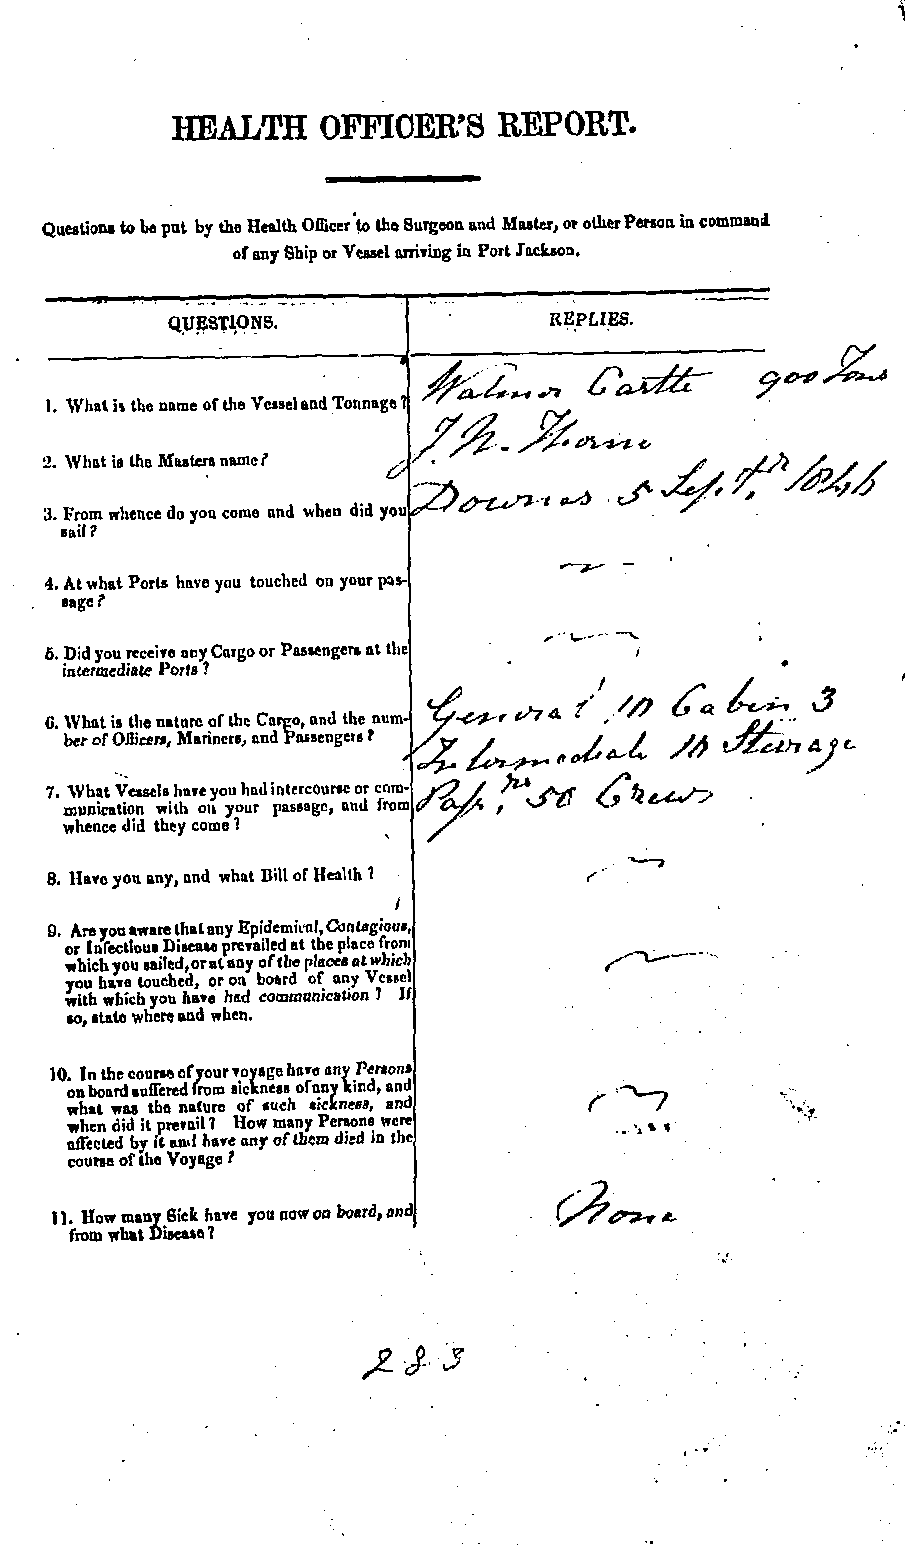 HEALTH OFFICER'S REPORT.
Questions to be put by the Health Officer to the Surgeon and Master, or other Person in command
of any Ship or Vessel arriving in Port Jackson.
QUESTIONS.
REPLIES.
1. What is the name of the Vessel and Tonnage?
Walmer Castle 900 Tons
2. What is the Masters name?
J. N. Thorne
3. From whence do you come and when did you
sail?
Downes 5 Septr. 1846
4. At what Ports have you touched on your pas-
sage?
5. Did you receive any Cargo or Passengers at the
intermediate Ports?
6. What is the nature of the Cargo, and the num-
ber of Officers, Mariners, and Passengers?
General Cabin 3
Intermediate Steerage
Passrs. 50 Crews
7. What Vessels have you had intercourse or com-
munication with on your passage, and from
whence did they come?
8. Have you any, and what Bill of Health?
9. Are you aware that any Epidemical, Contagious,
or Infectious Disease prevailed at the place from
which you sailed, or at any of the places at which
you have touched, or on board of any Vessel
with which you have had communication? If
so, state where and when.
10. In the course of your voyage have any Persons
on board suffered from sickness of any kind, and
what was the nature of such sickness, and
when did it prevail? How many Persons were
affected by it and have any of them died in the
course of the Voyage?
11. How many Sick have you now on board, and
from what Disease?
None
283